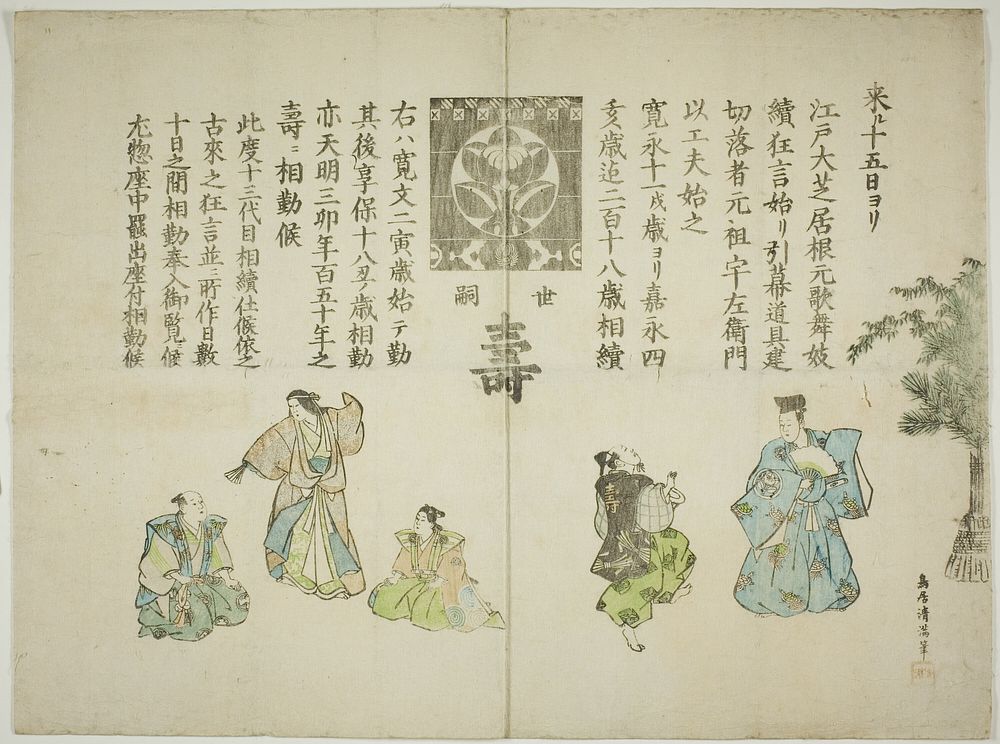 来ル十五日ヨリ
江戸大芝居根元歌舞妓
續狂言始リ引幕道具建
切落者元祖宇左衛門
以工夫始之
寛永十一戌歳ヨリ嘉永四
亥歳迄二百十八歳相續
世嗣
壽
右ハ寛文二寅歳始テ勤
其後享保十八丑ノ歳相勤
亦天明三卯年百五十年之
壽ニ相勤候
此度十三代目相續仕候依之
古來之狂言並ニ所作日數
十日之間相勤奉入御覧ニ候
尤惣座中罷出座付相勤候
壽
鳥居清満筆